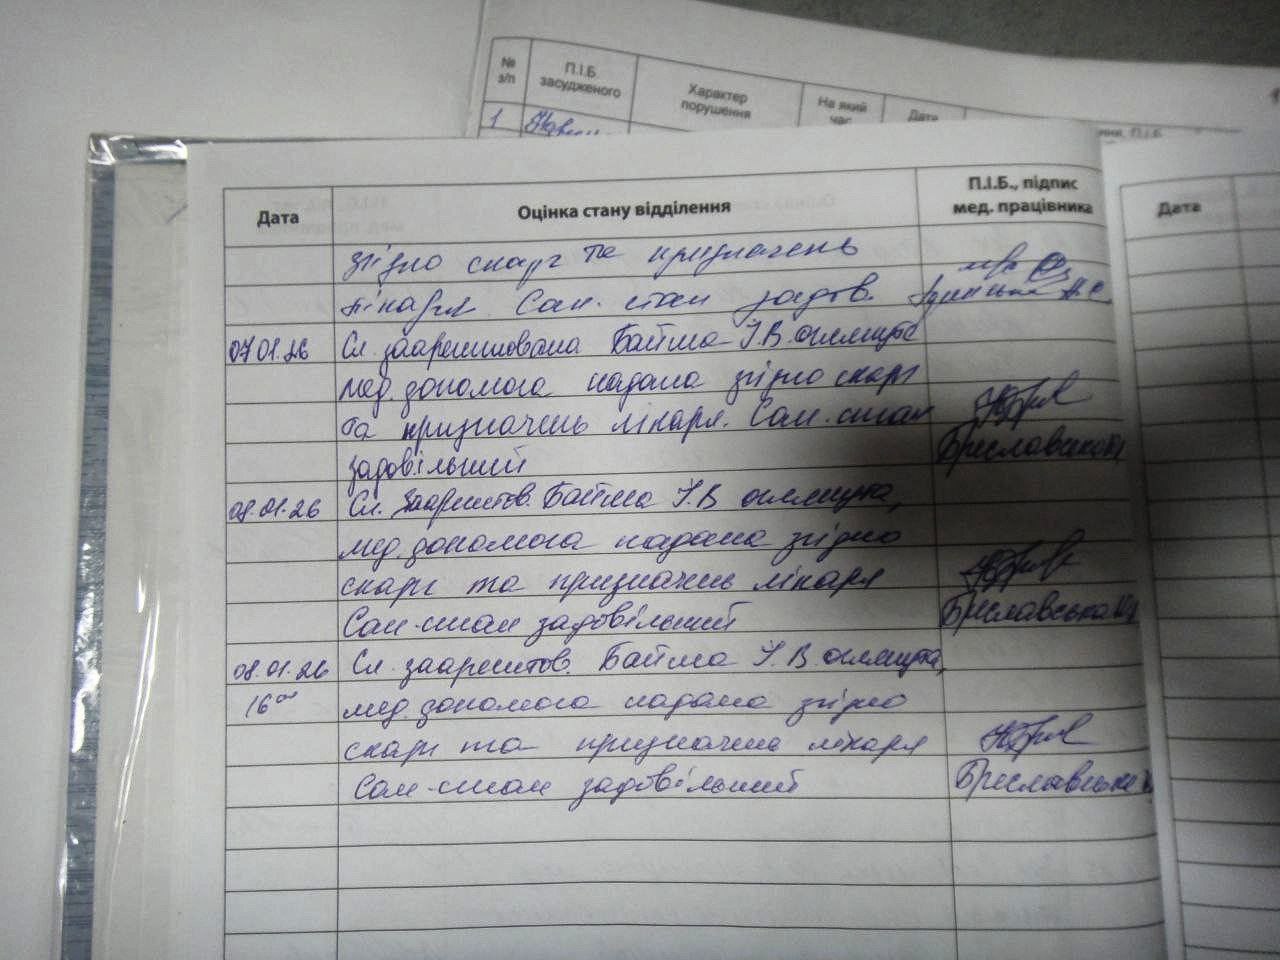 № з/п
П.І.Б. засудженого
Характер порушення
На який час
Дата
1
Дата
Оцінка стану відділення
П.І.Б., підпис мед. працівника
Дата
згідно скарг та призначень
лікаря. Сан. стан задов.
07.01.26 Сл. заарештована Байма І.В. оглянута
мед. допомога надана згідно скарг
та призначень лікаря. Сан. стан
задовільний
Бреславська
08.01.26 Сл. заарештов. Байма І.В оглянута,
мед. допомога надана згідно
скарг та призначень лікаря
Сан-стан задовільний
Бреславська
08.01.26 Сл. заарештов. Байма І.В оглянута,
16⁰⁰ мед. допомога надана згідно
скарг та призначень лікаря
Сан-стан задовільний
Бреславська